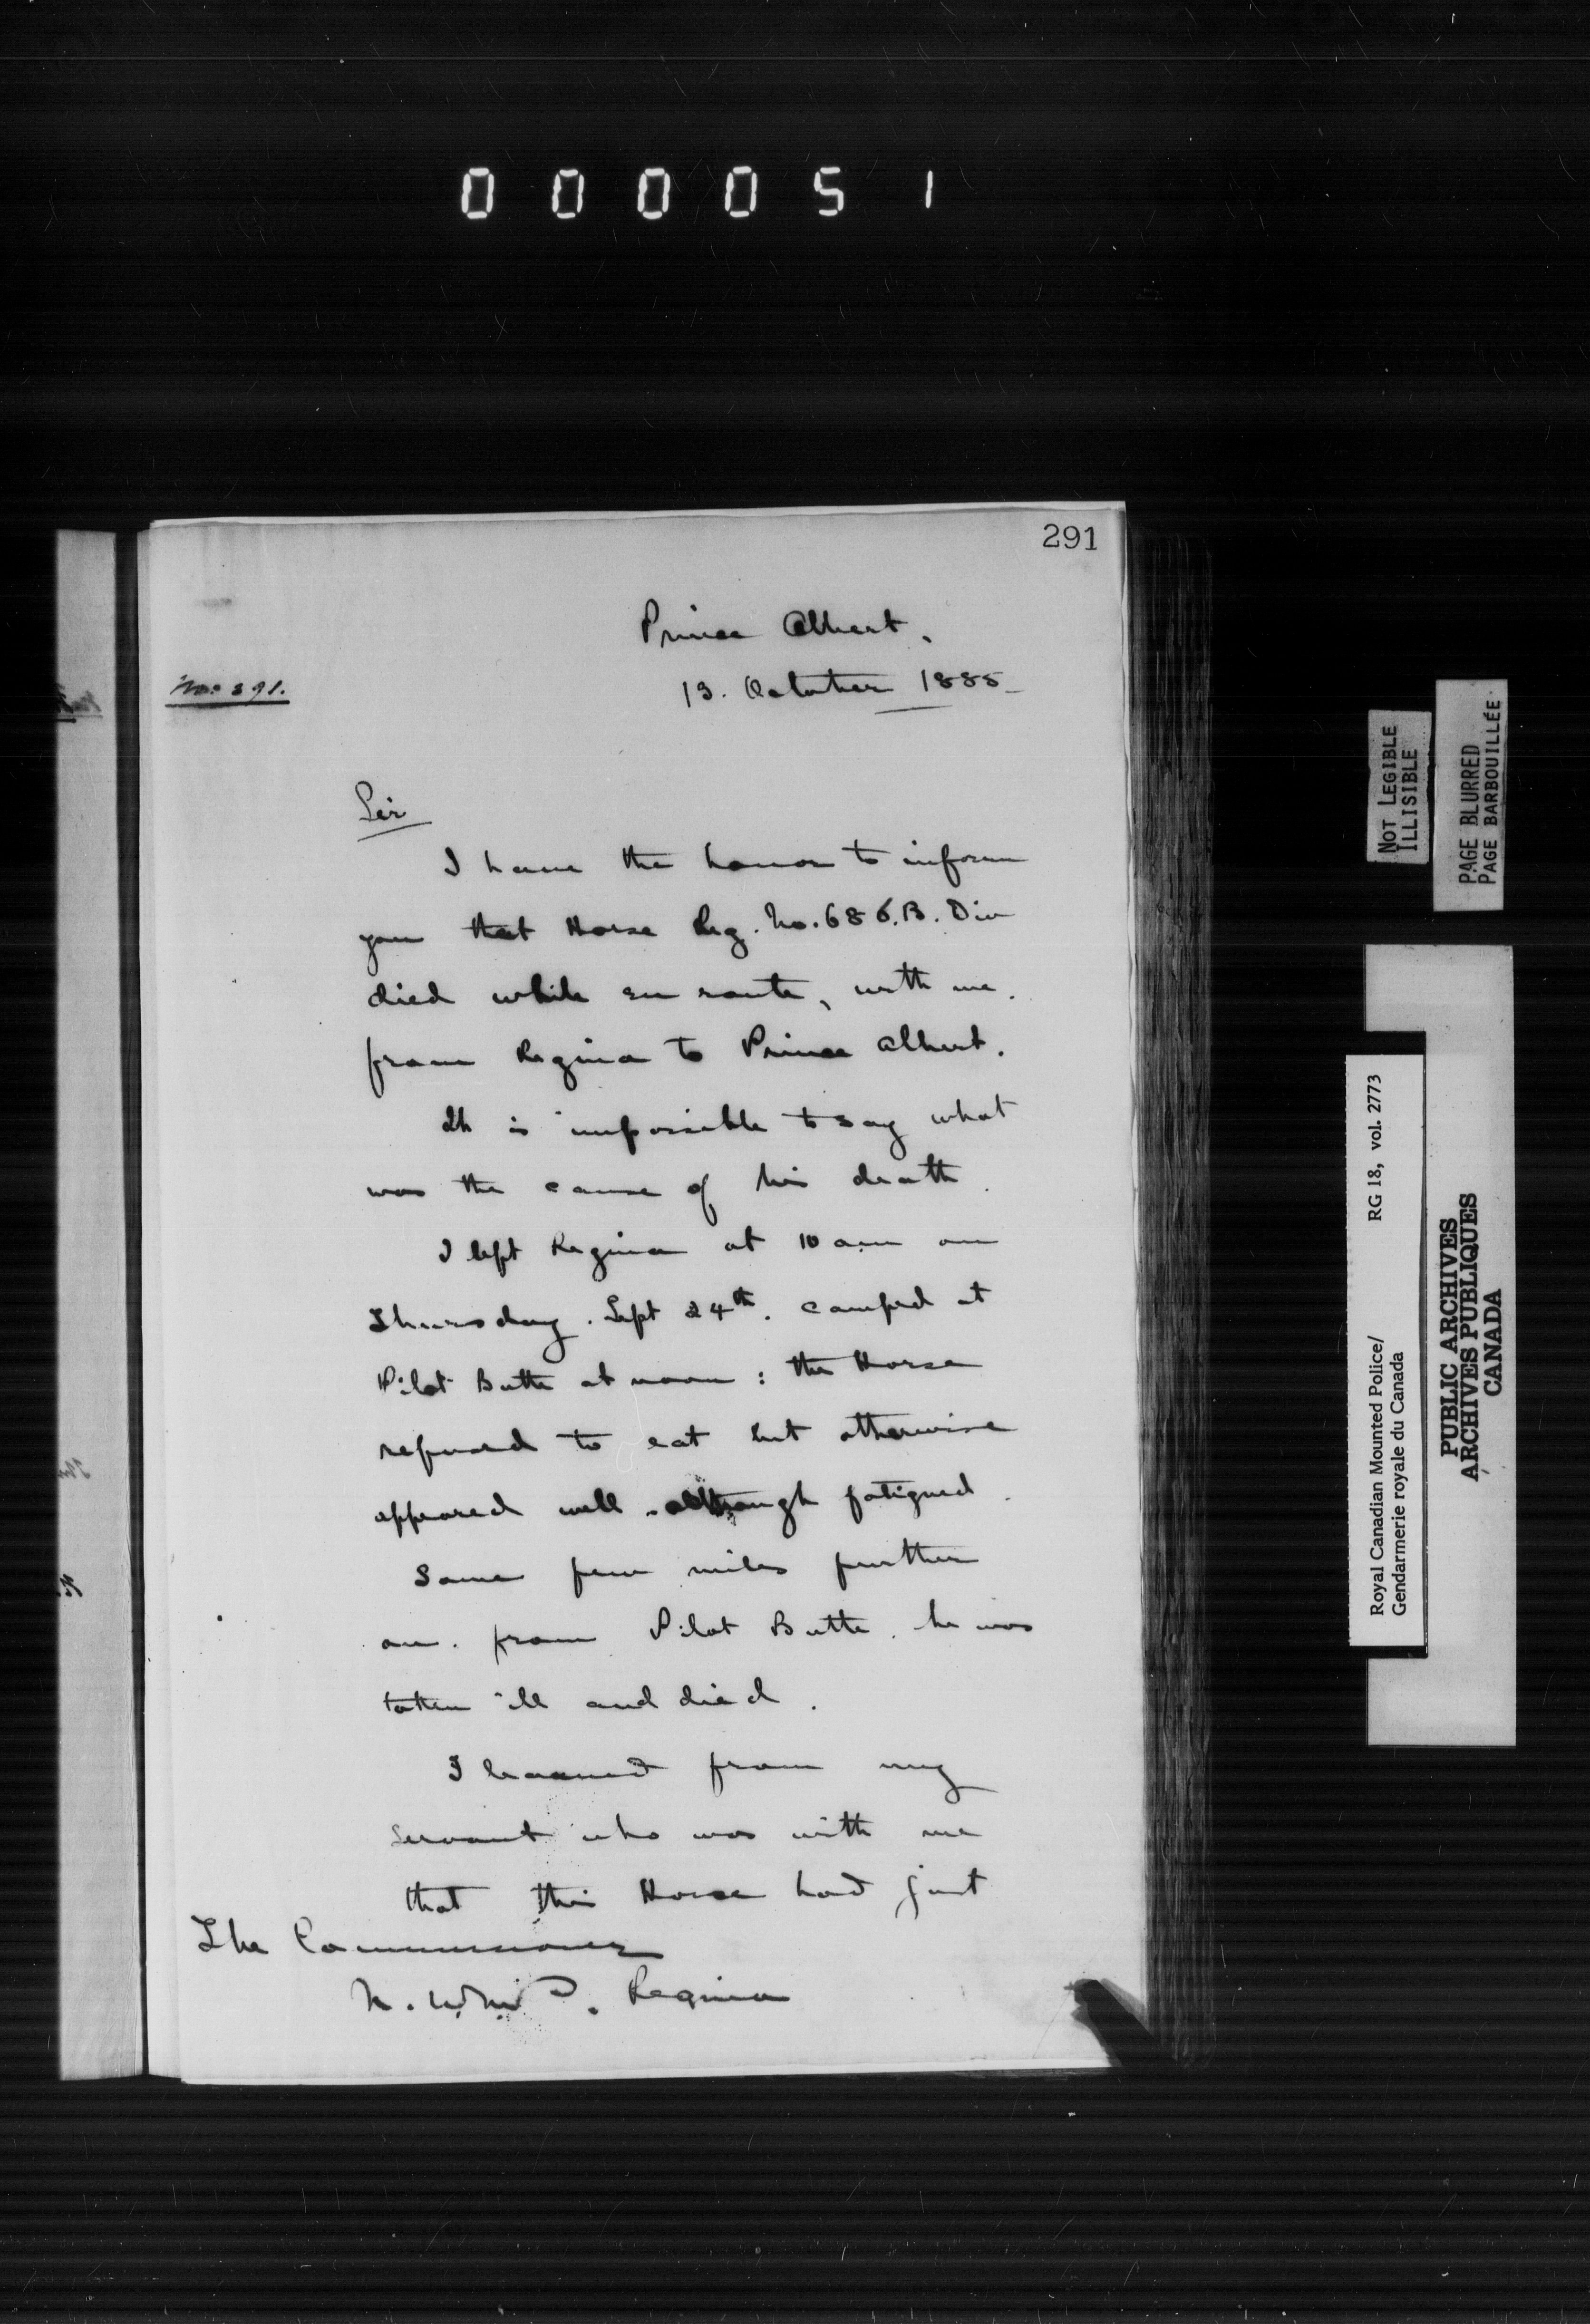 000051
291
Prince Albert.
No. 391.
13. October 1885
Sir
I have the honor to inform
you that Horse Reg. No. 686. B. Div
died while en route, with me.
from Regina to Prince Albert.
It is impossible to say what
was the cause of his death.
I left Regina at 10 am on
Thursday. Sept 24th. camped at
Pilot Butte at noon: the Horse
refused to eat but otherwise
appeared well. although fatigued.
Some few miles further
on. from Pilot Butte. he was
taken ill and died.
I learned from my
servant who was with me
that this Horse had just
The Commissioner
N. W. M. P. Regina
NOT LEGIBLE
ILLISIBLE
PAGE BLURRED
PAGE BARBOUILLÉE
Royal Canadian Mounted Police/ RG 18, vol. 2773
Gendarmerie royale du Canada
PUBLIC ARCHIVES
ARCHIVES PUBLIQUES
CANADA